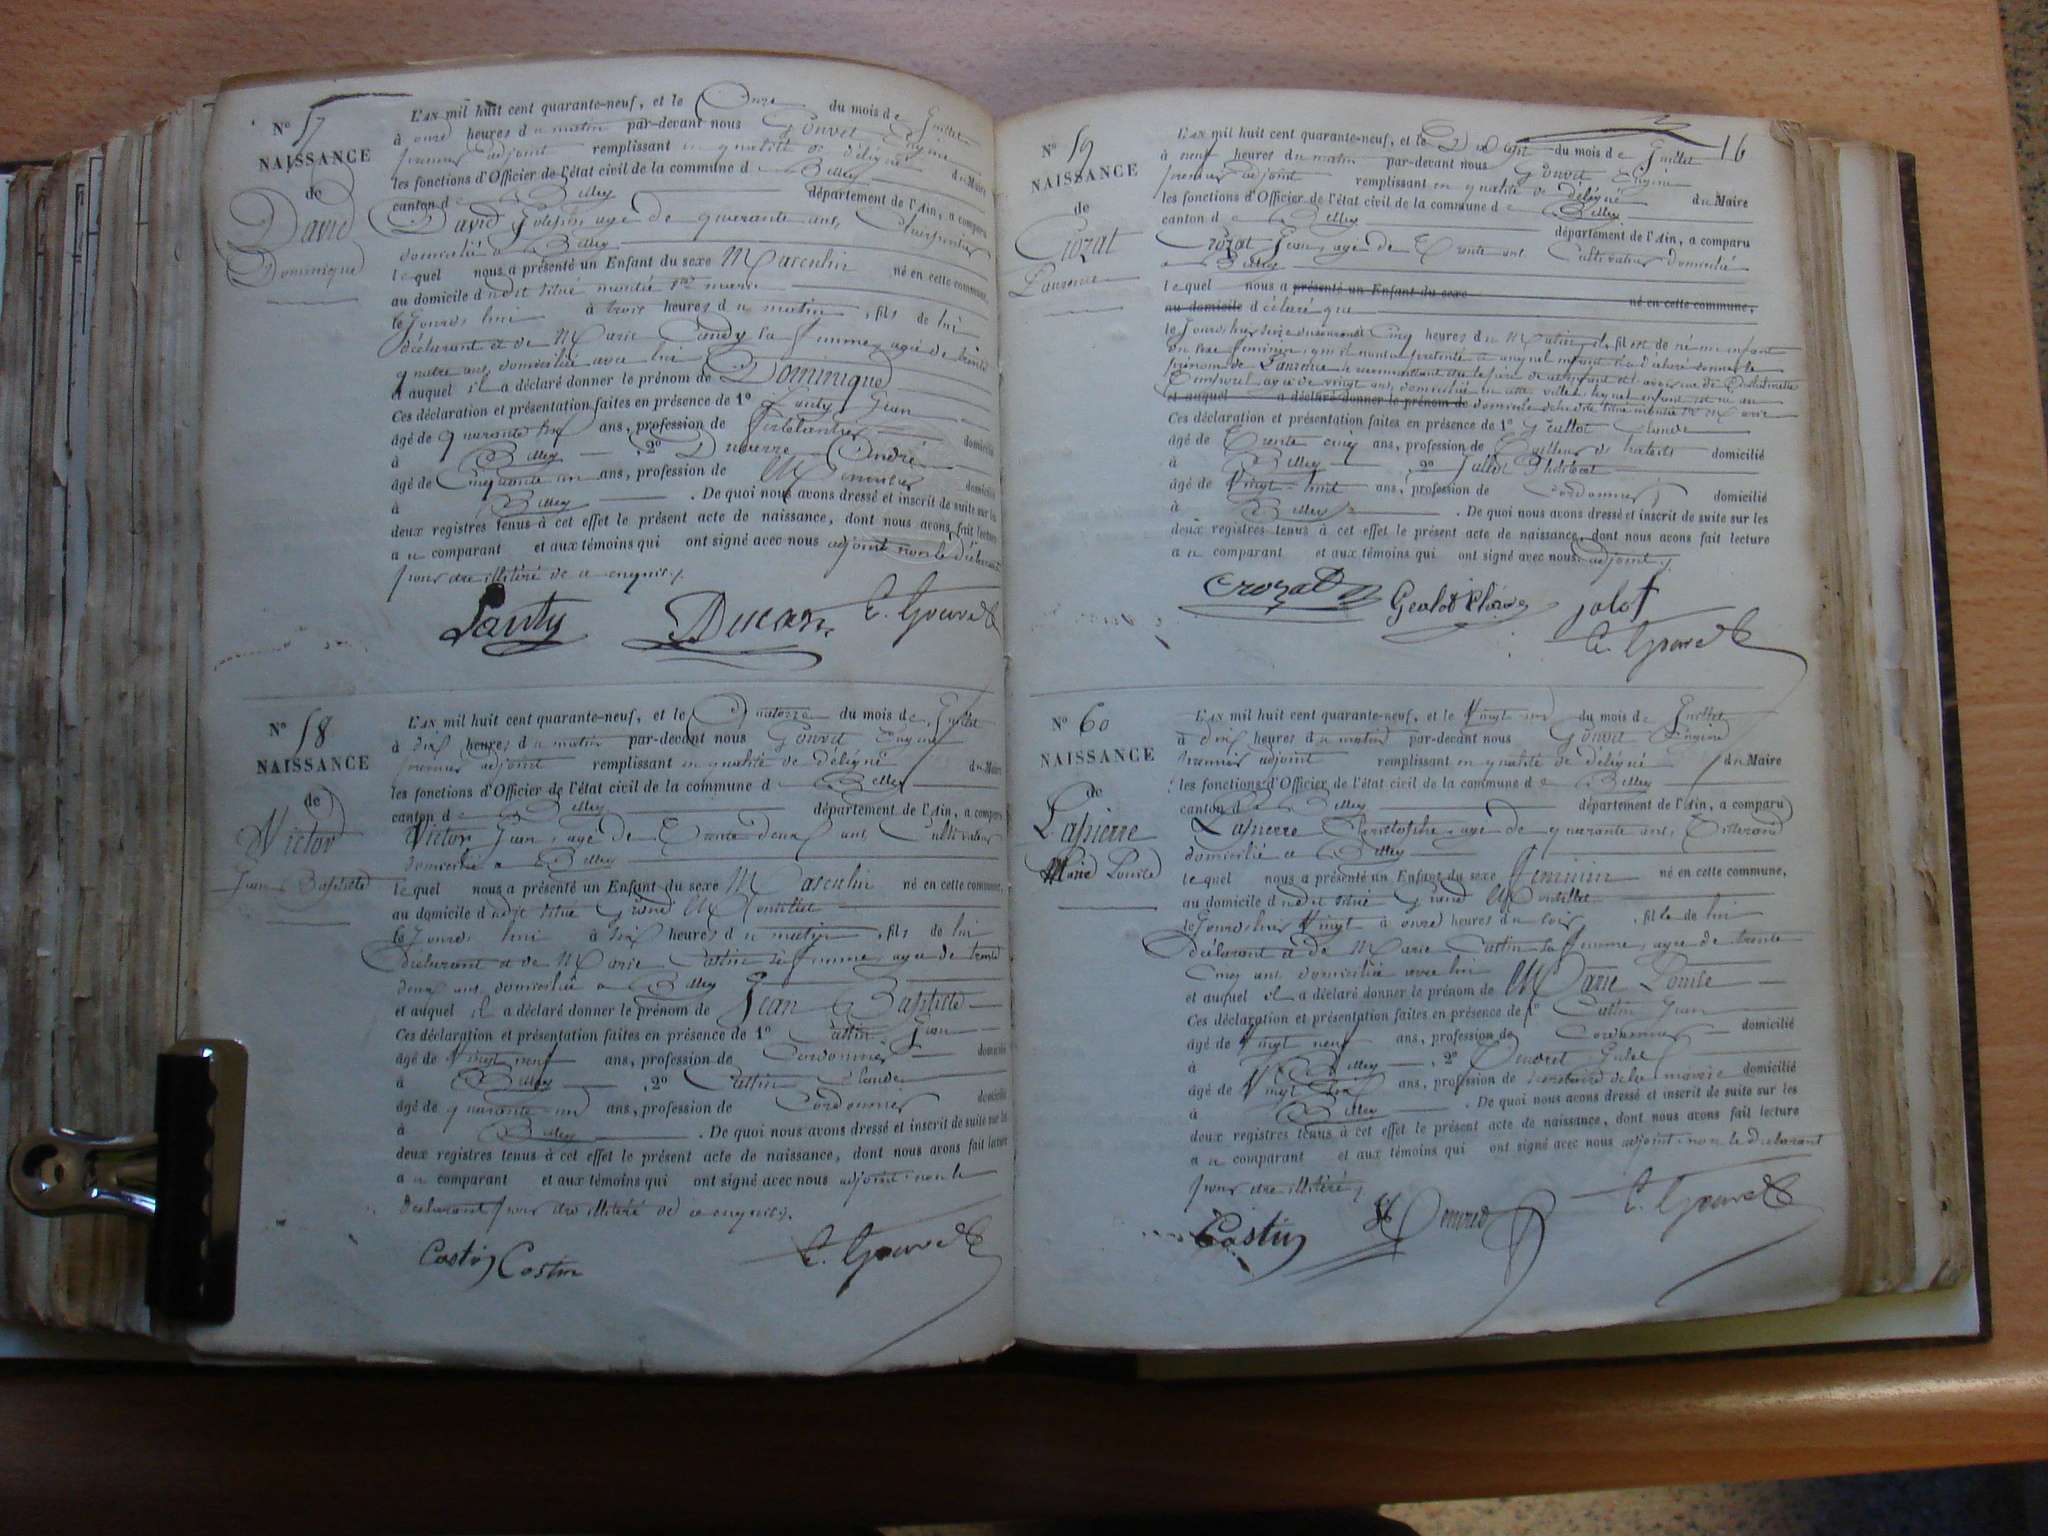 N° 57
NAISSANCE
de
David
Dominique
L'AN mil huit cent quarante-neuf, et le Onze du mois de Juillet
à onze heures du matin par-devant nous Gouvet Eugène
premier adjoint remplissant en qualité de délégué du Maire
les fonctions d'Officier de l'état civil de la commune de Belley
canton de Belley département de l'Ain, a comparu
David Joseph, age de quarante ans,
domicilié a Belley
lequel nous a présenté un Enfant du sexe Masculin né en cette commune,
au domicile du dit situé montée
le Jourd'hui à trois heures du matin, fils de lui
déclarant et de Marie sa femme, agée de trente
quatre ans, domiciliée avec lui
et auquel il a déclaré donner le prénom de Dominique
Ces déclaration et présentation faites en présence de 1° Jean
âgé de quarante six ans, profession de domicilié
à Belley, 2° André
âgé de Cinquante un ans, profession de Menuisier domicilié
à Belley. De quoi nous avons dressé et inscrit de suite sur les
deux registres tenus à cet effet le présent acte de naissance, dont nous avons fait lecture
au comparant et aux témoins qui ont signé avec nous adjoint non le déclarant
pour être illitéré de ce enquis.
E. Gouvet
N° 58
NAISSANCE
de
Victor
Jean Baptiste
L'AN mil huit cent quarante-neuf, et le Quatorze du mois de Juillet
à dix heures du matin par-devant nous Gouvet Eugène
premier adjoint remplissant en qualité de délégué du Maire
les fonctions d'Officier de l'état civil de la commune de Belley
canton de Belley département de l'Ain, a comparu
Victor Jean, age de Trente deux ans, Cultivateur
domicilié a Belley
lequel nous a présenté un Enfant du sexe Masculin né en cette commune,
au domicile du dit situé Grand
le Jourd'hui à six heures du matin, fils de lui
déclarant et de Marie Cattin sa femme, agée de trente
deux ans domiciliée a Belley
et auquel il a déclaré donner le prénom de Jean Baptiste
Ces déclaration et présentation faites en présence de 1° Cattin Jean
âgé de Vingt neuf ans, profession de Cordonnier domicilié
à Belley, 2° Cattin Claude
âgé de quarante un ans, profession de Cordonnier domicilié
à Belley. De quoi nous avons dressé et inscrit de suite sur les
deux registres tenus à cet effet le présent acte de naissance, dont nous avons fait lecture
au comparant et aux témoins qui ont signé avec nous adjoint non le
déclarant pour être illitéré de ce enquis.
E. Gouvet
16
N° 59
NAISSANCE
de
Crozat
Laurence
L'AN mil huit cent quarante-neuf, et le Dix sept du mois de Juillet
à neuf heures du matin par-devant nous Gouvet Eugène
premier adjoint remplissant en qualité de délégué du Maire
les fonctions d'Officier de l'état civil de la commune de Belley
canton de Belley département de l'Ain, a comparu
Crozat Jean, age de Trente ans Cultivateur domicilié
a Belley
lequel nous a présenté un Enfant du sexe né en cette commune,
au domicile déclaré que
le Jourd'hui seize du courant à Cinq heures du Matin, il est né un enfant
du sexe féminin, qu'il nous a présenté et auquel enfant il a déclaré donner le
prénom de Laurence
agée de vingt ans, domiciliée en cette ville, lequel enfant est né au
et auquel a déclaré donner le prénom de domicile
Ces déclaration et présentation faites en présence de 1° Claude
âgé de Trente cinq ans, profession de Tailleur d'habits domicilié
à Belley, 2°
âgé de Vingt-huit ans, profession de Cordonnier domicilié
à Belley. De quoi nous avons dressé et inscrit de suite sur les
deux registres tenus à cet effet le présent acte de naissance, dont nous avons fait lecture
au comparant et aux témoins qui ont signé avec nous adjoint.
Crozat
jolot
E. Gouvet
N° 60
NAISSANCE
de
Lapierre
Marie Louise
L'AN mil huit cent quarante-neuf, et le Vingt un du mois de Juillet
à dix heures du matin par-devant nous Gouvet Eugène
premier adjoint remplissant en qualité de délégué du Maire
les fonctions d'Officier de l'état civil de la commune de Belley
canton de Belley département de l'Ain, a comparu
Lapierre Christophe, age de quarante ans, Tisserand
domicilié a Belley
lequel nous a présenté un Enfant du sexe féminin né en cette commune,
au domicile du dit situé Grand
le Jourd'hier Vingt à onze heures du soir, fille de lui
déclarant et de Marie Cattin sa femme, agée de trente
cinq ans domiciliée avec lui
et auquel il a déclaré donner le prénom de Marie Louise
Ces déclaration et présentation faites en présence de 1° Cattin Jean
âgé de Vingt neuf ans, profession de Cordonnier domicilié
à Belley, 2°
âgé de Vingt six ans, profession de secrétaire de la mairie domicilié
à Belley. De quoi nous avons dressé et inscrit de suite sur les
deux registres tenus à cet effet le présent acte de naissance, dont nous avons fait lecture
au comparant et aux témoins qui ont signé avec nous adjoint non le déclarant
pour être illitéré,
E. Gouvet